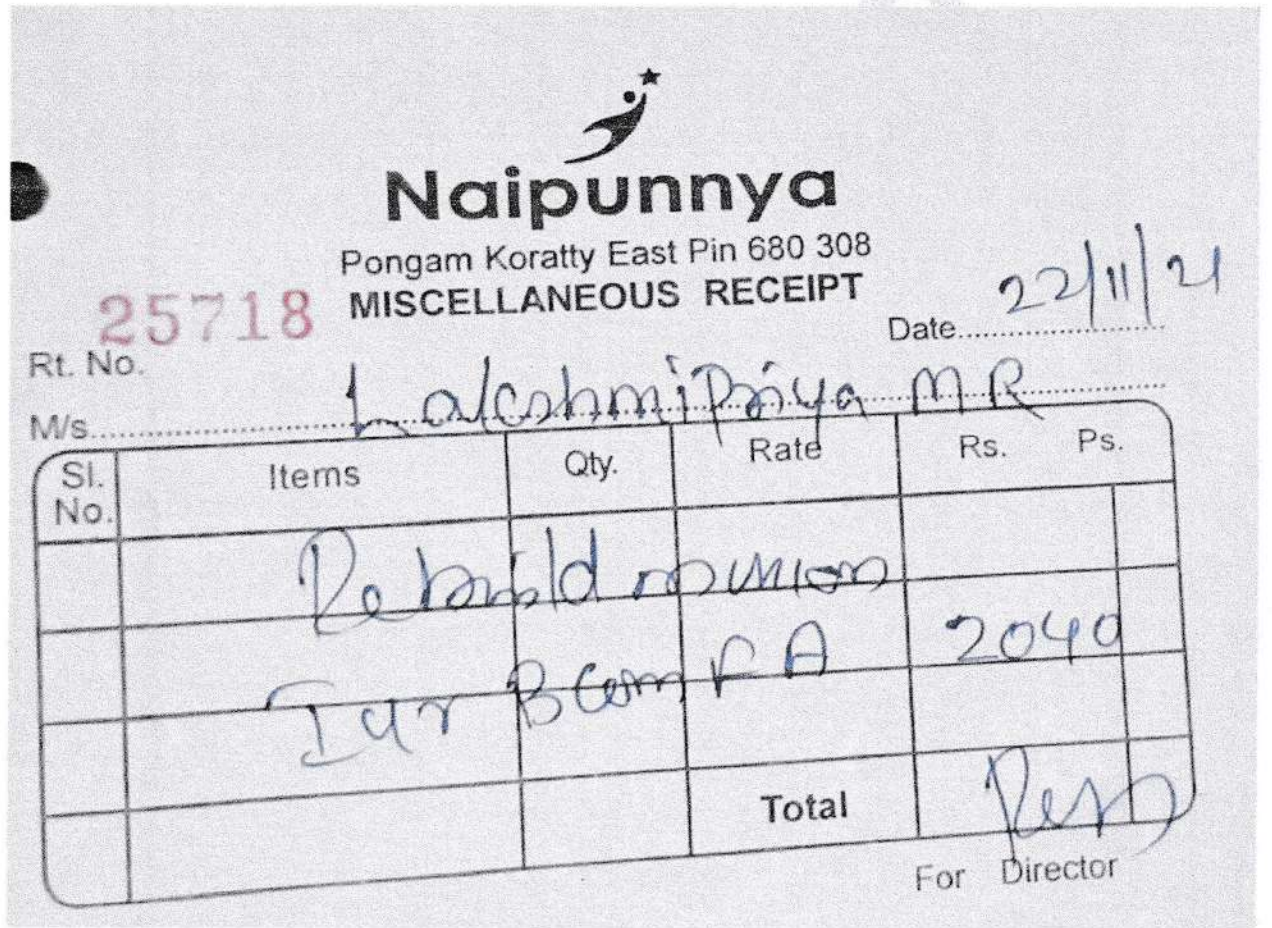 Naipunnya
Pongam Koratty East Pin 680 308
MISCELLANEOUS RECEIPT
Rt. No. 25718
Date 22/11/21
M/s. Lakshmi Priya M R
Sl. No. Items Qty. Rate Rs. Ps.
Rebuild
I yr B Com F A 2040
Total
For Director